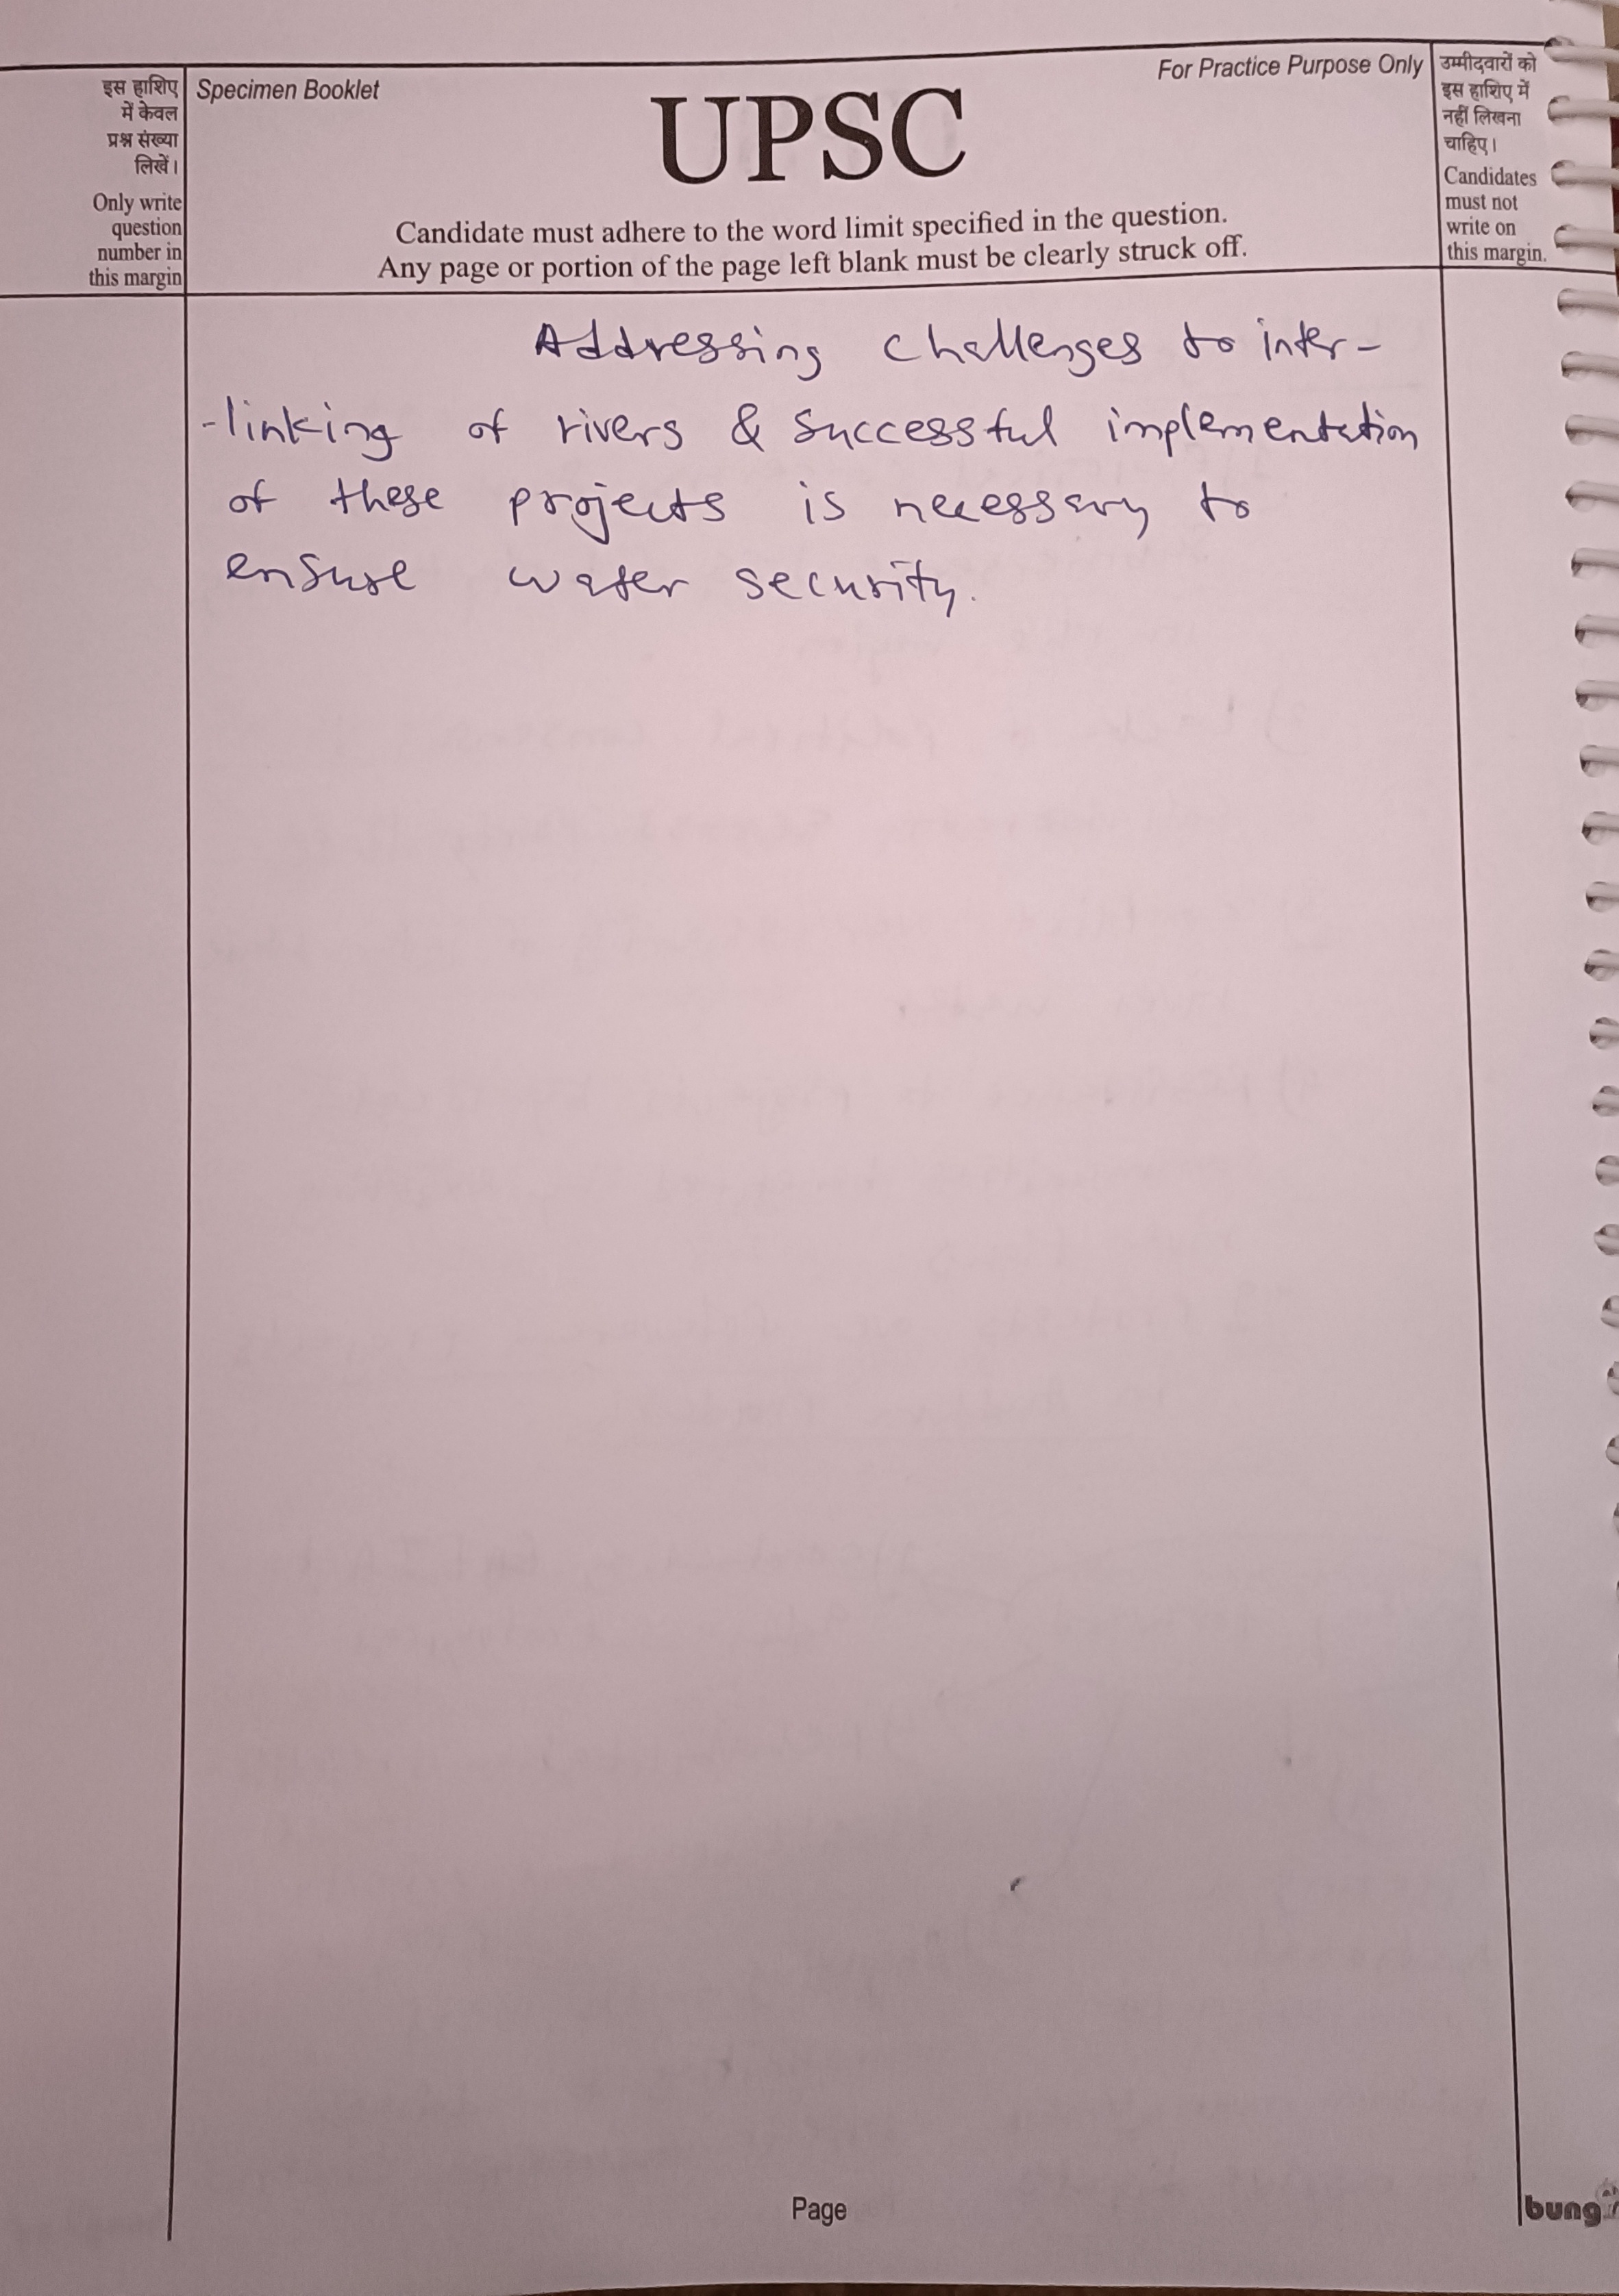 इस हाशिए
में केवल
प्रश्न संख्या
लिखें।
Only write
question
number in
this margin
Specimen Booklet
For Practice Purpose Only
UPSC
Candidate must adhere to the word limit specified in the question.
Any page or portion of the page left blank must be clearly struck off.
उम्मीदवारों को
इस हाशिए में
नहीं लिखना
चाहिए।
Candidates
must not
write on
this margin.
Addressing challenges to inter-
-linking of rivers & successful implementation
of these projects is necessary to
ensure water security.
Page
bung